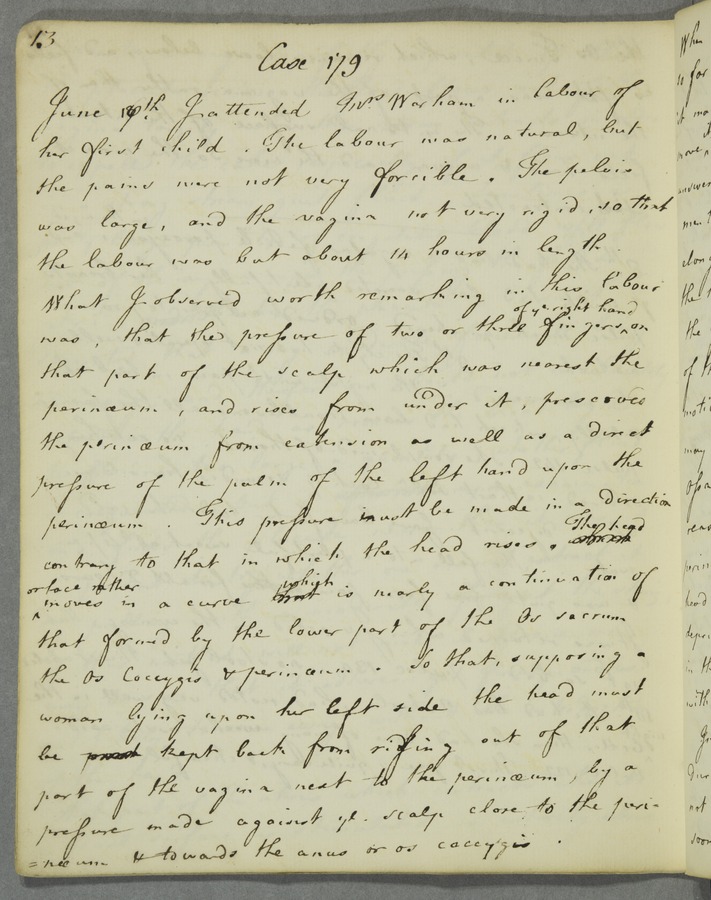 13
Case 179
June 9th. I attended Mrs Warham in labour of
her first child. The labour was natural, but
the pains were not very forcible. The pelvis
was large, and the vagina not very rigid, so that
the labour was but about 14 hours in length.
What I observed worth remarking in this labour
of ye. right hand
was, that the pressure of two or three fingers ^ on
that part of the scalp which was nearest the
perinæum, and rises from under it, preserves
the perinæum from extension as well as a direct
pressure of the palm of the left hand upon the
perinæum. This pressure must be made in a direction
contrary to that in which the head rises. The head
or face rather which
^ moves in a curve is nearly a continuation of
that formed by the lower part of the Os sacrum
the Os Coccygis & perinæum. So that, supposing a
woman lying upon her left side the head must
be kept back from rising out of that
part of the vagina next to the perinæum, by a
pressure made against ye. scalp close to the peri-
=næum & towards the anus or os coccygis.